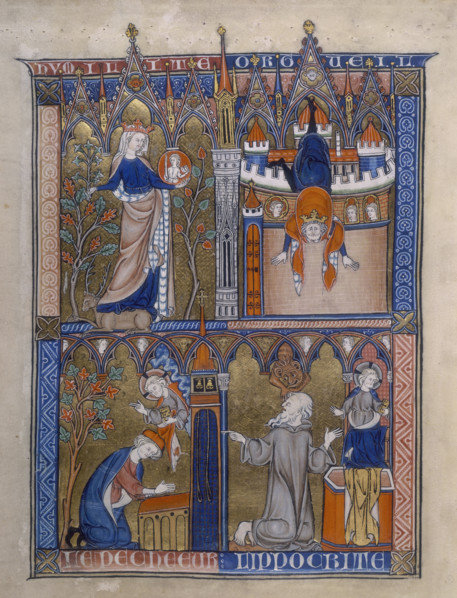 HUMILITE ORGUEIL
LE PECHEEUR: LIPPOCRITE